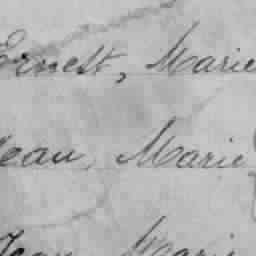 Ernest, Marie
Jean, Marie
Jean Marie